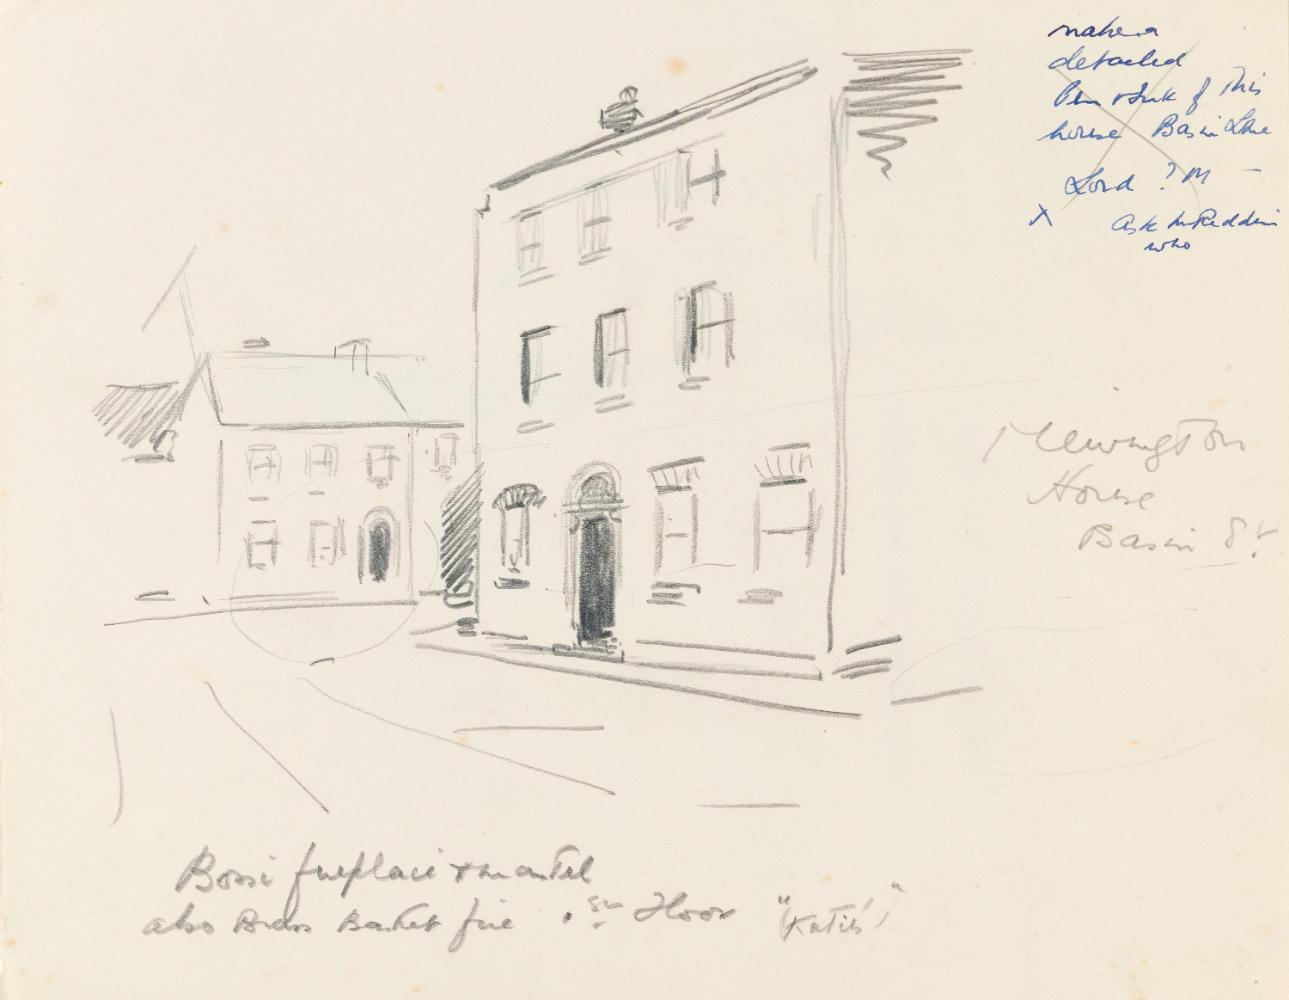 make a
detailed
Pen & Ink of This
house Basin Lane
Lord ? M —
X Ask McReddin
who
House
Basin St.
Bossi fireplace & mantel
also Brass Basket fire 1st Floor "(Katie's)"